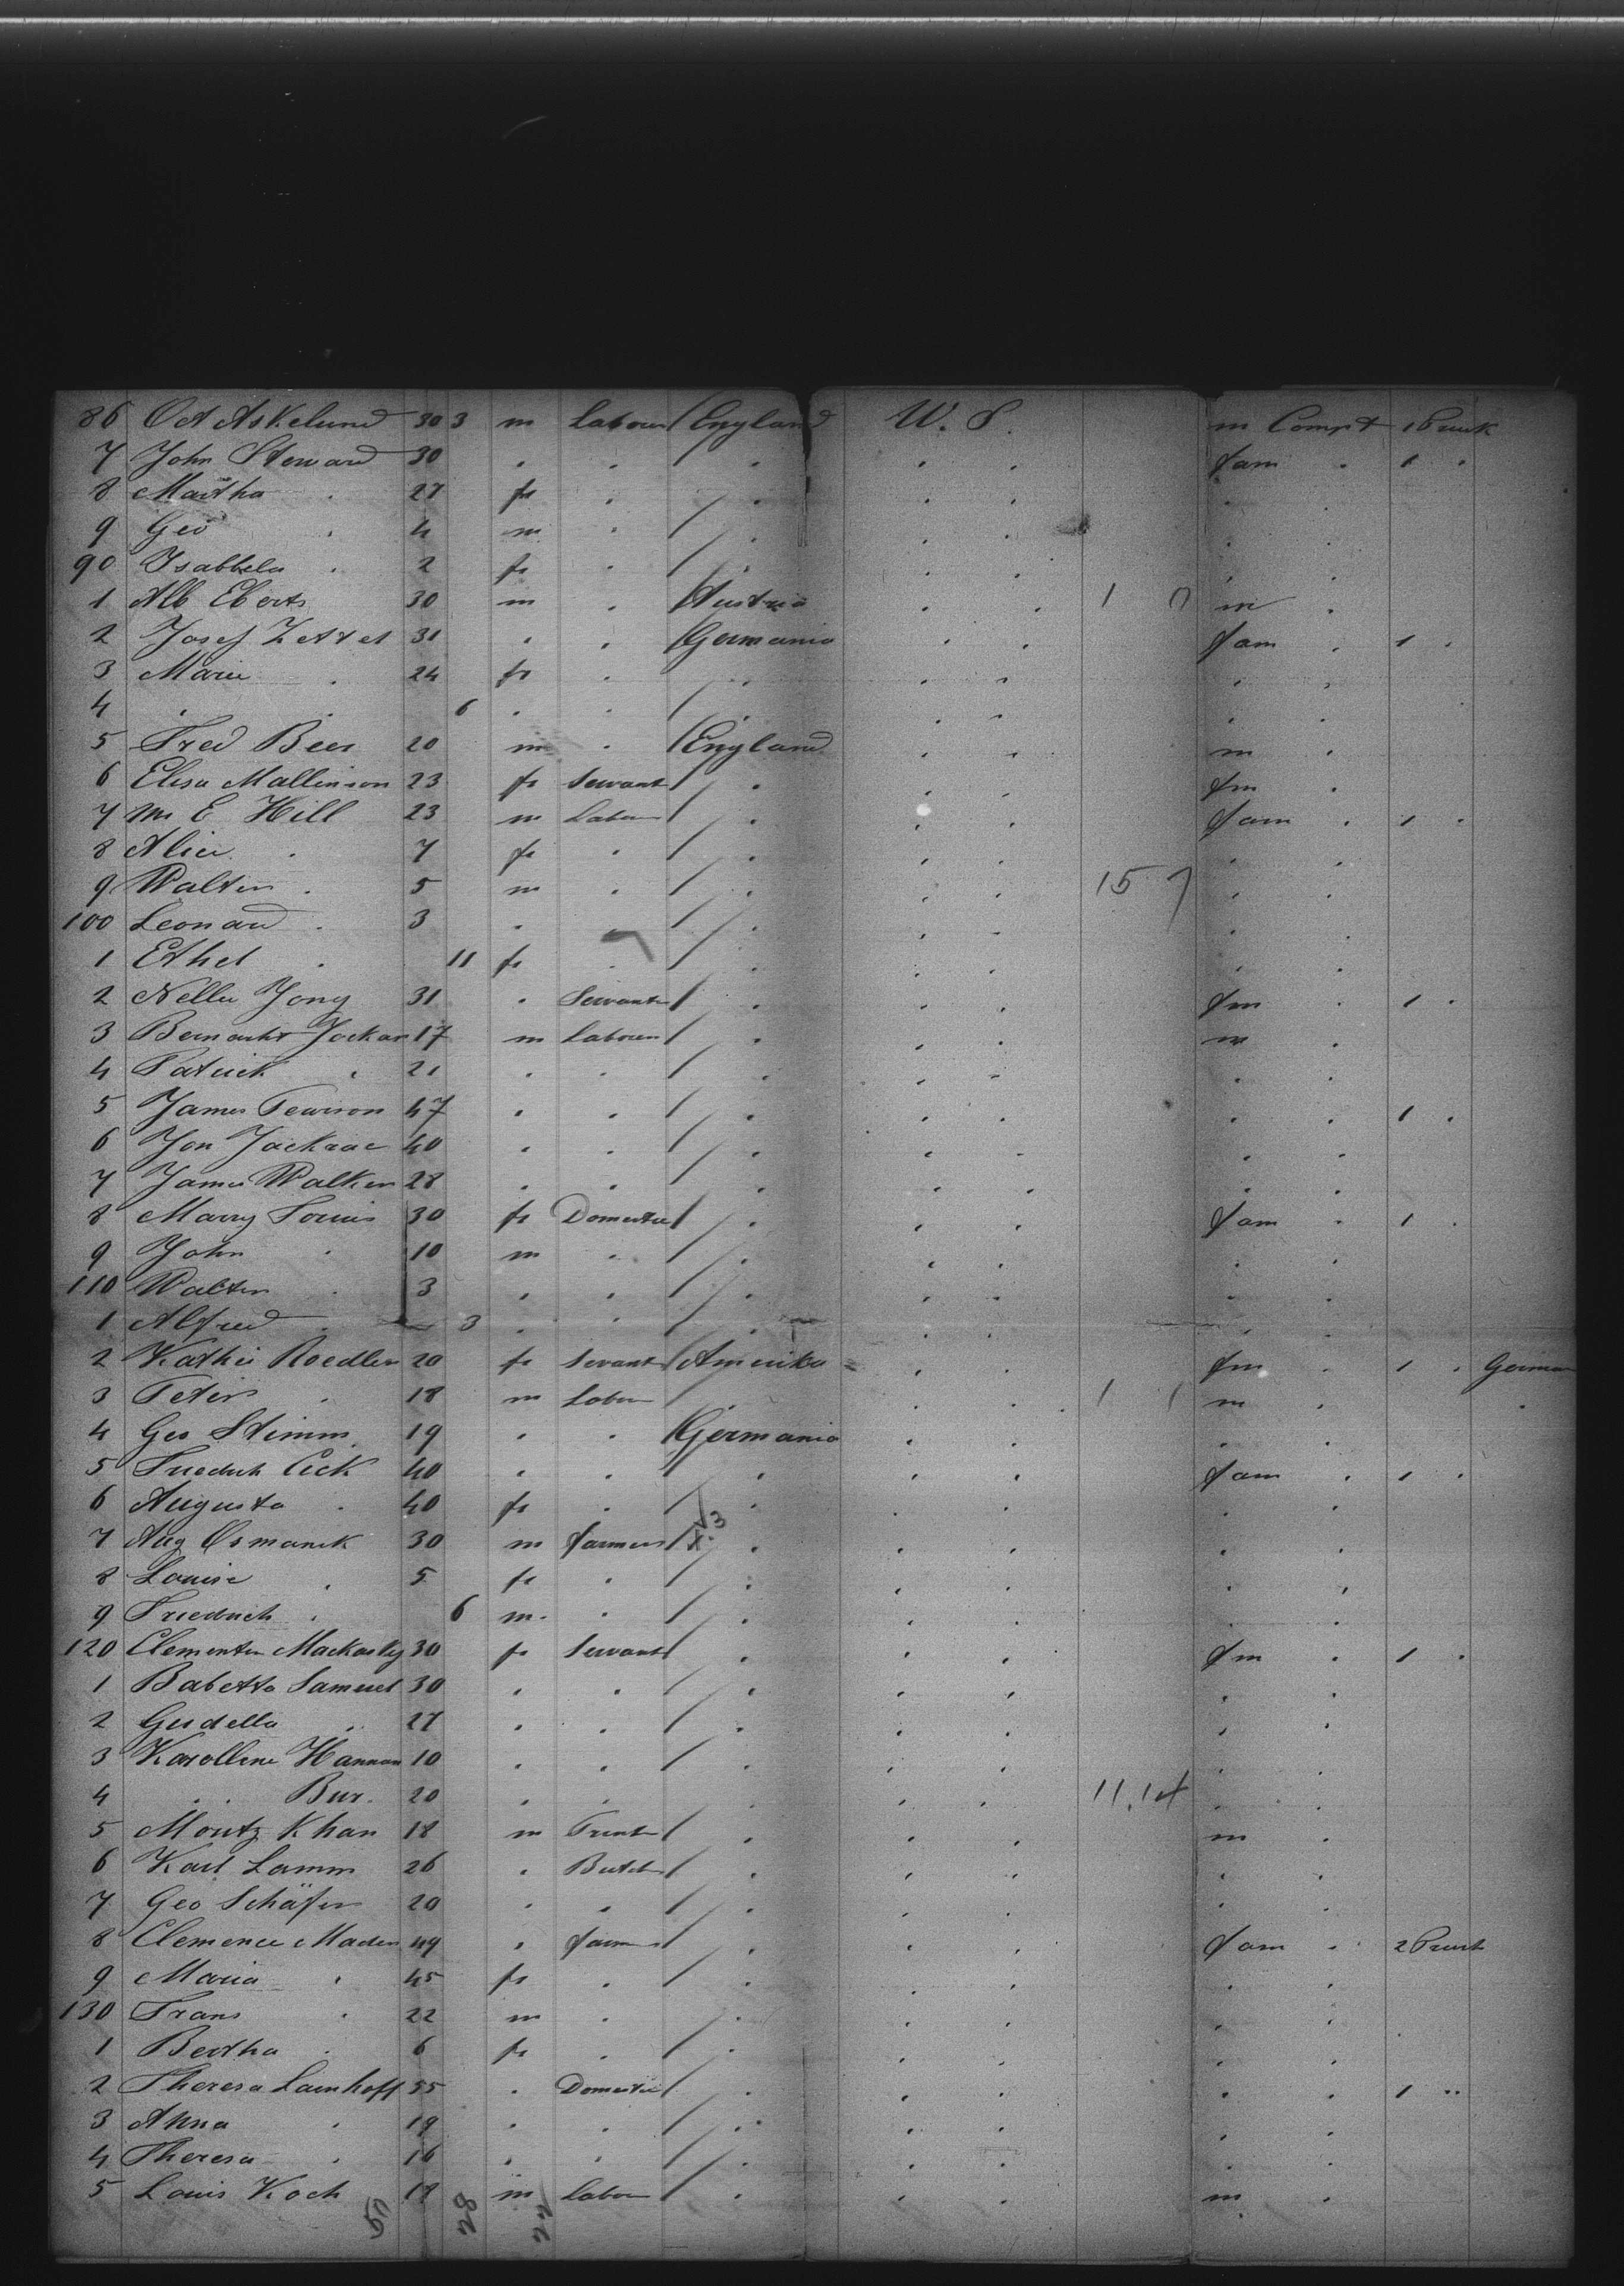 86 Oct Askelund 30 3 m Labour England W. S. m Compt 1 Trunk
7 John Steward 30 . . / . . . fam . 1 .
8 Martha . 27 fr . / . . . . .
9 Geo . 4 m . / . . . . .
90 Isabbela . 2 fr . / . . . . .
1 Alb Eberts 30 m . Austria . . 1 m .
2 Josef Zettel 31 . . Germania . . fam . 1 .
3 Marie . 24 fr . / . . . . .
4 . . 6 . . / . . . . .
5 Fred Beer 20 m . England . . m .
6 Elisa Mallinson 23 fr Servant / . . . fm .
7 M E Hill 23 m Labour / . . . fam . 1 .
8 Alice . 7 fr . / . . . . .
9 Walter . 5 m . / . . . 15 7 . .
100 Leonard . 3 . . / . . . . .
1 Ethel . 11 fr . / . . . . .
2 Nellie Yong 31 . Servant / . . . fm . 1 .
3 17 m Labour / . . . m .
4 Patrick . 21 . . / . . . . .
5 James Pearson 47 . . / . . . . . 1 .
6 Jon 40 . . / . . . . .
7 James Walker 28 . . / . . . . .
8 Marry 30 fr Domestic / . . . fam . 1 .
9 John . 10 m . / . . . . .
110 Walter . 3 . . / . . . . .
1 Alfred . 3 . . / . . . . .
2 Kathie Roedler 20 fr Servant Amerika . . fm . 1 . German
3 Peter . 18 m Labour / . . . 1 1 m . .
4 Geo Stimm 19 . . Germania . . . .
5 Friedrich Eick 40 . . / . . . fam . 1 .
6 Augusta . 40 fr . / . . . .
7 Aug Osmanek 30 m farmer / . . . . .
8 Louise . 5 fr . / . . . . .
9 Friedrich . 6 m . / . . . . .
120 Clementin Mackasky 30 fr Servant / . . . fm . 1 .
1 Babetta Samuel 30 . . / . . . . .
2 Gudella . 27 . . / . . . . .
3 Karolline Hannau 10 . . / . . . . .
4 . . Bur. 20 . . . . . 11.14 . .
5 Moritz Khan 18 m / . . . m .
6 Karl Lamm 26 . Butch / . . . . .
7 Geo Schäfer 20 . . / . . . . .
8 Clemence Mader 49 . farm / . . . fam . 2 Trunk
9 Maria . 45 fr . / . . . . .
130 Frans . 22 m . . . . . .
1 Bertha . 6 fr . / . . . . .
2 Theresa Lamhoff 55 . Domestic / . . . . . 1 ..
3 Anna . 19 . . / . . . . .
4 Theresa . 16 . . / . . . . .
5 Louis Koch 18 m Labour / . . . m .
50 28 22